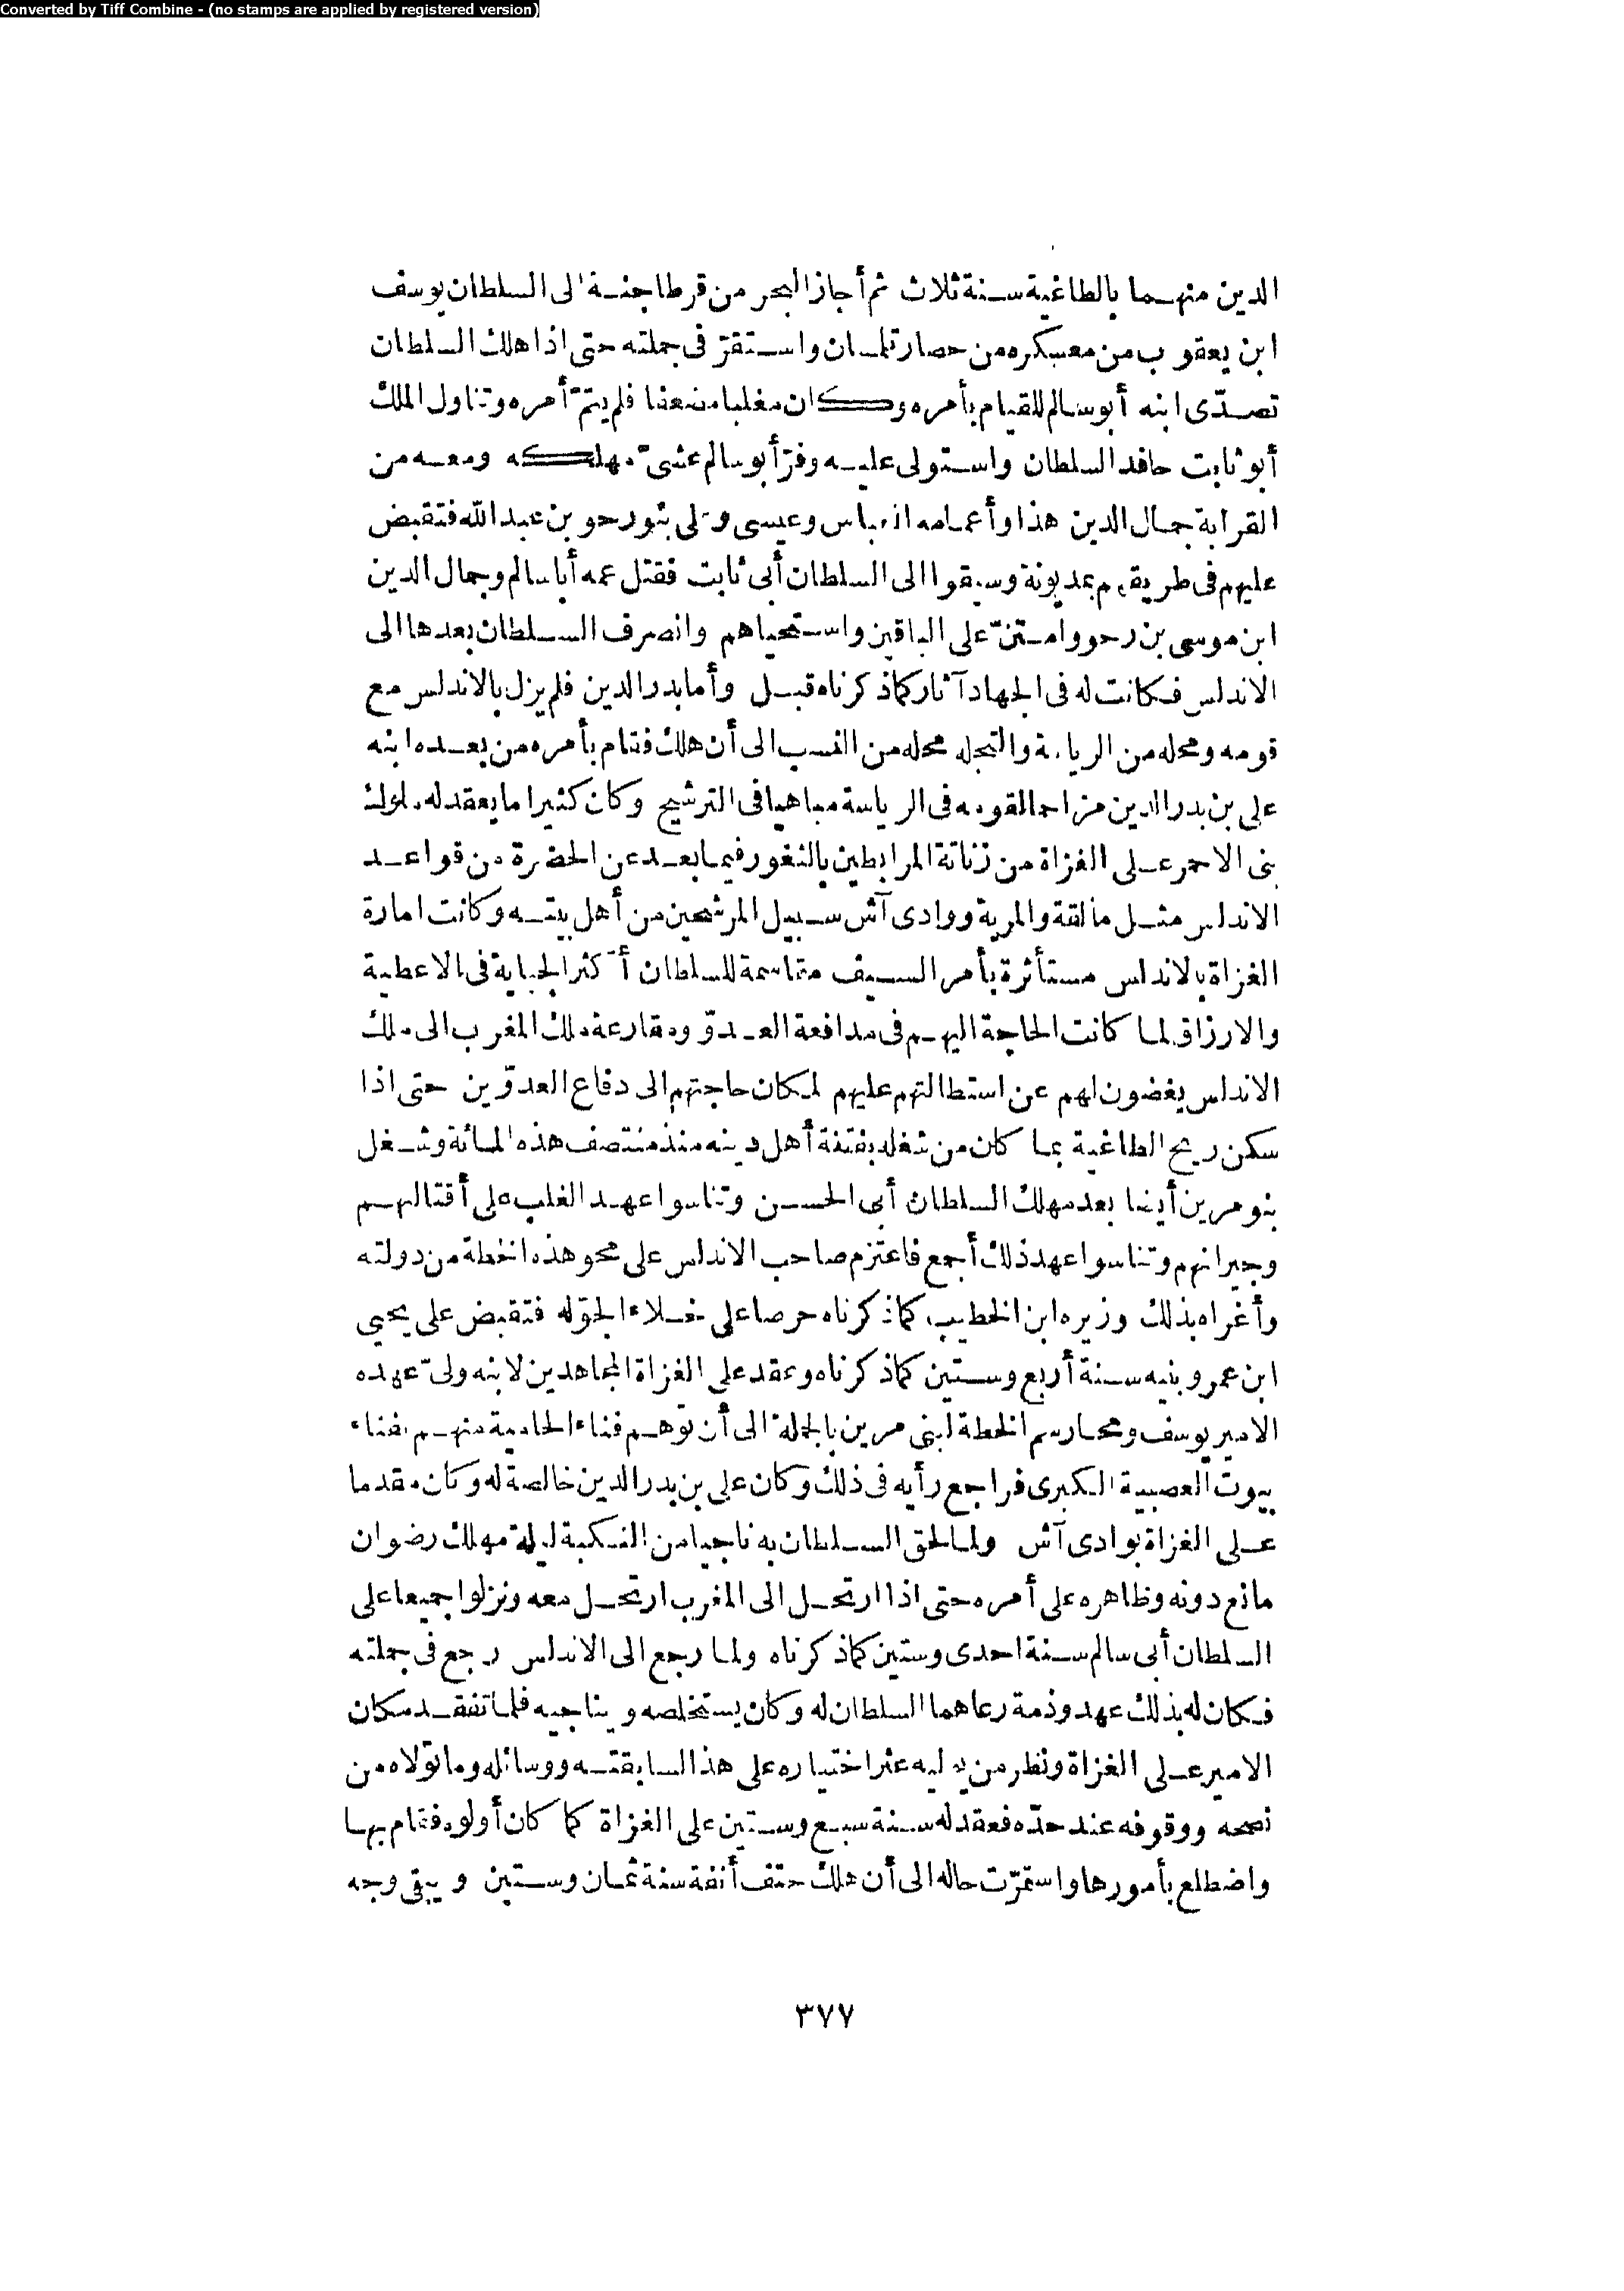 Converted by Tiff Combine - (no stamps are applied by registered version)
الدين منهما بالطاغية سنة ثلاث ثم أجاز البحر من قرطاجنة الى السلطان يوسف
ابن يعقوب من معسكره من حصار تلمسان واستقرّ فى جملته حتى اذا هلك السلطان
تصدّى ابنه أبو سالم للقيام بأمره وكان مغلبا مضعفا فلم يتمّ أمره وتناول الملك
أبو ثابت حافد السلطان واستولى عليه وفرّ أبو سالم عشىّ مهلكه ومعه من
القرابة جمال الدين هذا وأعمامه العباس وعيسى وعلى بنو رحو بن عبد الله فتقبض
عليهم فى طريقهم بمديونة وسيقوا الى السلطان أبى ثابت فقتل عمه أبا سالم وجمال الدين
ابن موسى بن رحو وامتنّ على الباقين واستحياهم وانصرف السلطان بعدها الى
الاندلس فكانت له فى الجهاد آثار كما ذكرناه قبل وأما بدر الدين فلم يزل بالاندلس مع
قومه ومحله من الرياسة والتجلة محله من النسب الى أن هلك فقام بأمره من بعده ابنه
على بن بدر الدين مزاحما لقومه فى الرياسة مباهيا فى الترشيح وكان كثيرا ما يعقد له ملوك
بنى الاحمر على الغزاة من زناتة المرابطين بالثغور فيما بعد عن الحضرة من قواعد
الاندلس مثل مالقة والمرية ووادى آش سبيل المرشحين من أهل بيته وكانت امارة
الغزاة بالاندلس مستأثرة بأمر السيف مقاسمة للسلطان أكثر الجباية فى الاعطية
والارزاق لما كانت الحاجة اليهم فى مدافعة العدوّ ومقارعة ملك المغرب الى ملك
الاندلس يغضون لهم عن استطالتهم عليهم لمكان حاجتهم الى دفاع العدوّين حتى اذا
سكن ريح الطاغية بما كان من شغله بفتنة أهل دينه منذ منتصف هذه المائة وشغل
بنو مرين أيضا بعد مهلك السلطان أبى الحسن وتناسوا عهد الغلب على أقتالهم
وجيرانهم وتناسوا عهد ذلك أجمع فاعتزم صاحب الاندلس على محو هذه الخطة من دولته
وأغراه بذلك وزيره ابن الخطيب كما ذكرناه حرصا على خلاء الجوّ له فتقبض على يحيى
ابن عمر وبنيه سنة أربع وستين كما ذكرناه وعقد على الغزاة المجاهدين لابنه ولىّ عهده
الامير يوسف ومحا رسم الخطة لبنى مرين بالجملة الى أن توهم فناء الحامية منهم بفناء
بيوت العصبية الكبرى فراجع رأيه فى ذلك وكان على بن بدر الدين خالصة له وكان مقدما
على الغزاة بوادى آش ولما لحق السلطان به ناجيا من النكبة ليلة مهلك رضوان
مانع دونه وظاهره على أمره حتى اذا ارتحل الى المغرب ارتحل معه ونزلوا جميعا على
السلطان أبى سالم سنة احدى وستين كما ذكرناه ولما رجع الى الاندلس رجع فى جملته
فكان له بذلك عهد وذمة رعاهما السلطان له وكان يستخلصه ويناجيه فلما تفقد مكان
الامير على الغزاة ونظر من يوليه عثر اختياره على هذا لسابقته ووسائله وما تولاه من
نصحه ووقوفه عند حدّه فعقد له سنة سبع وستين على الغزاة كما كان أولوه فقام بها
واضطلع بأمورها واستمرّت حاله الى أن هلك حتف أنفة سنة ثمان وستين ويبقى وجه
٣٧٧